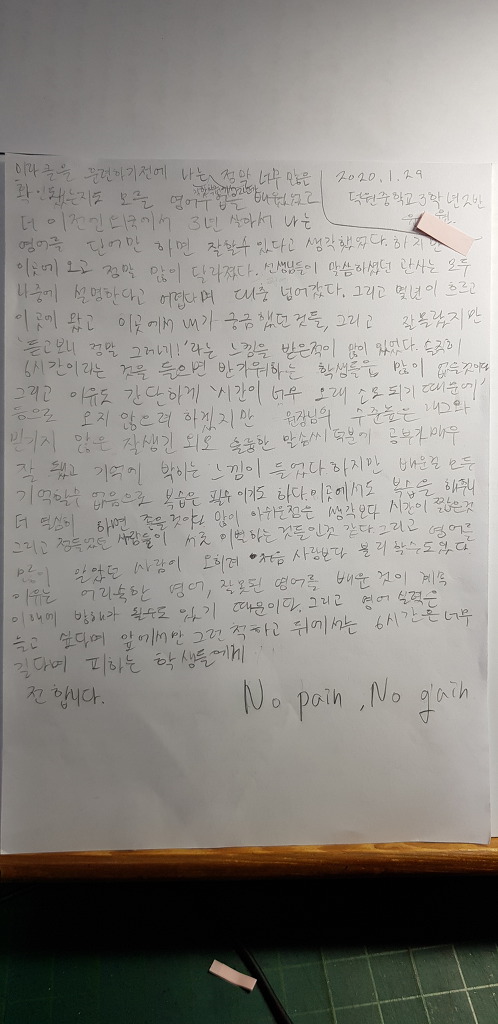 나는 정말 너무 많은
2020.1.29
모를 영어수업을 배웠었고
덕원중학교 3학년 2반
더 이전엔 외국에서 3년 살아서 나는
영어를 단어만 하면 잘할수 있다고 생각했었다. 하지만
이곳에 오고 정말 많이 달라졌다. 선생님들이 말씀하셨던 관사는 모두
나중에 설명하다고 어렵다며 대충 넘어갔다. 그리고 몇년이 흐르고
이곳에 왔고 이곳에서 내가 궁금했던 것들, 그리고 잘 몰랐지만
'듣고보니 정말 그러네!'라는 느낌을 받은적이 많이 있었다. 솔직히
6시간이라는 것을 들으면 반가워하는 학생들은 많이 없을것이다
그리고 이유도 간단하게 '시간이 너무 오래 소모되기 때문에'
등으로 오지 않으려 하겠지만 원장님의 수준높은 개그와
믿기지 않은 잘생긴 외모 훌륭한 말솜씨 덕분에 공부가 매우
잘 됐고 기억에 박히는 느낌이 들었다 하지만 배운걸 모두
기억할수 없음으로 복습은 필수 이기도 하다. 이곳에서도 복습을 해줬니
더 열심히 하면 좋을것이다 많이 아쉬운점은 생각보다 시간이 짧은것
그리고 정들었던 사람들이 서로 이별하는 것들인것 같다. 그리고 영어를
많이 알았던 사람이 오히려 처음 사람보다 불리할수도 있다
이유는 어리숙한 영어, 잘못된 영어를 배운 것이 계속
이해에 방해가 될수도 있기 때문이다. 그리고 영어 실력은
늘고 싶다며 앞에서만 그런 척하고 뒤에서는 6시간은 너무
길다며 피하는 학생들에게
전합니다.
No pain, No gain